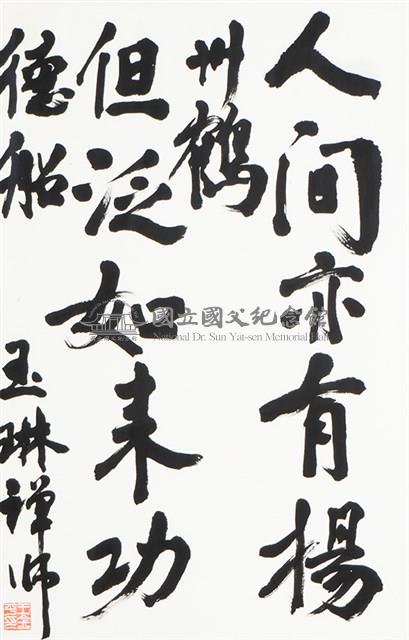 人间亦有揚
州鹤
但泛如来功
德船
玉琳禅师
國立國父紀念館
National Dr. Sun Yat-sen Memorial Hall